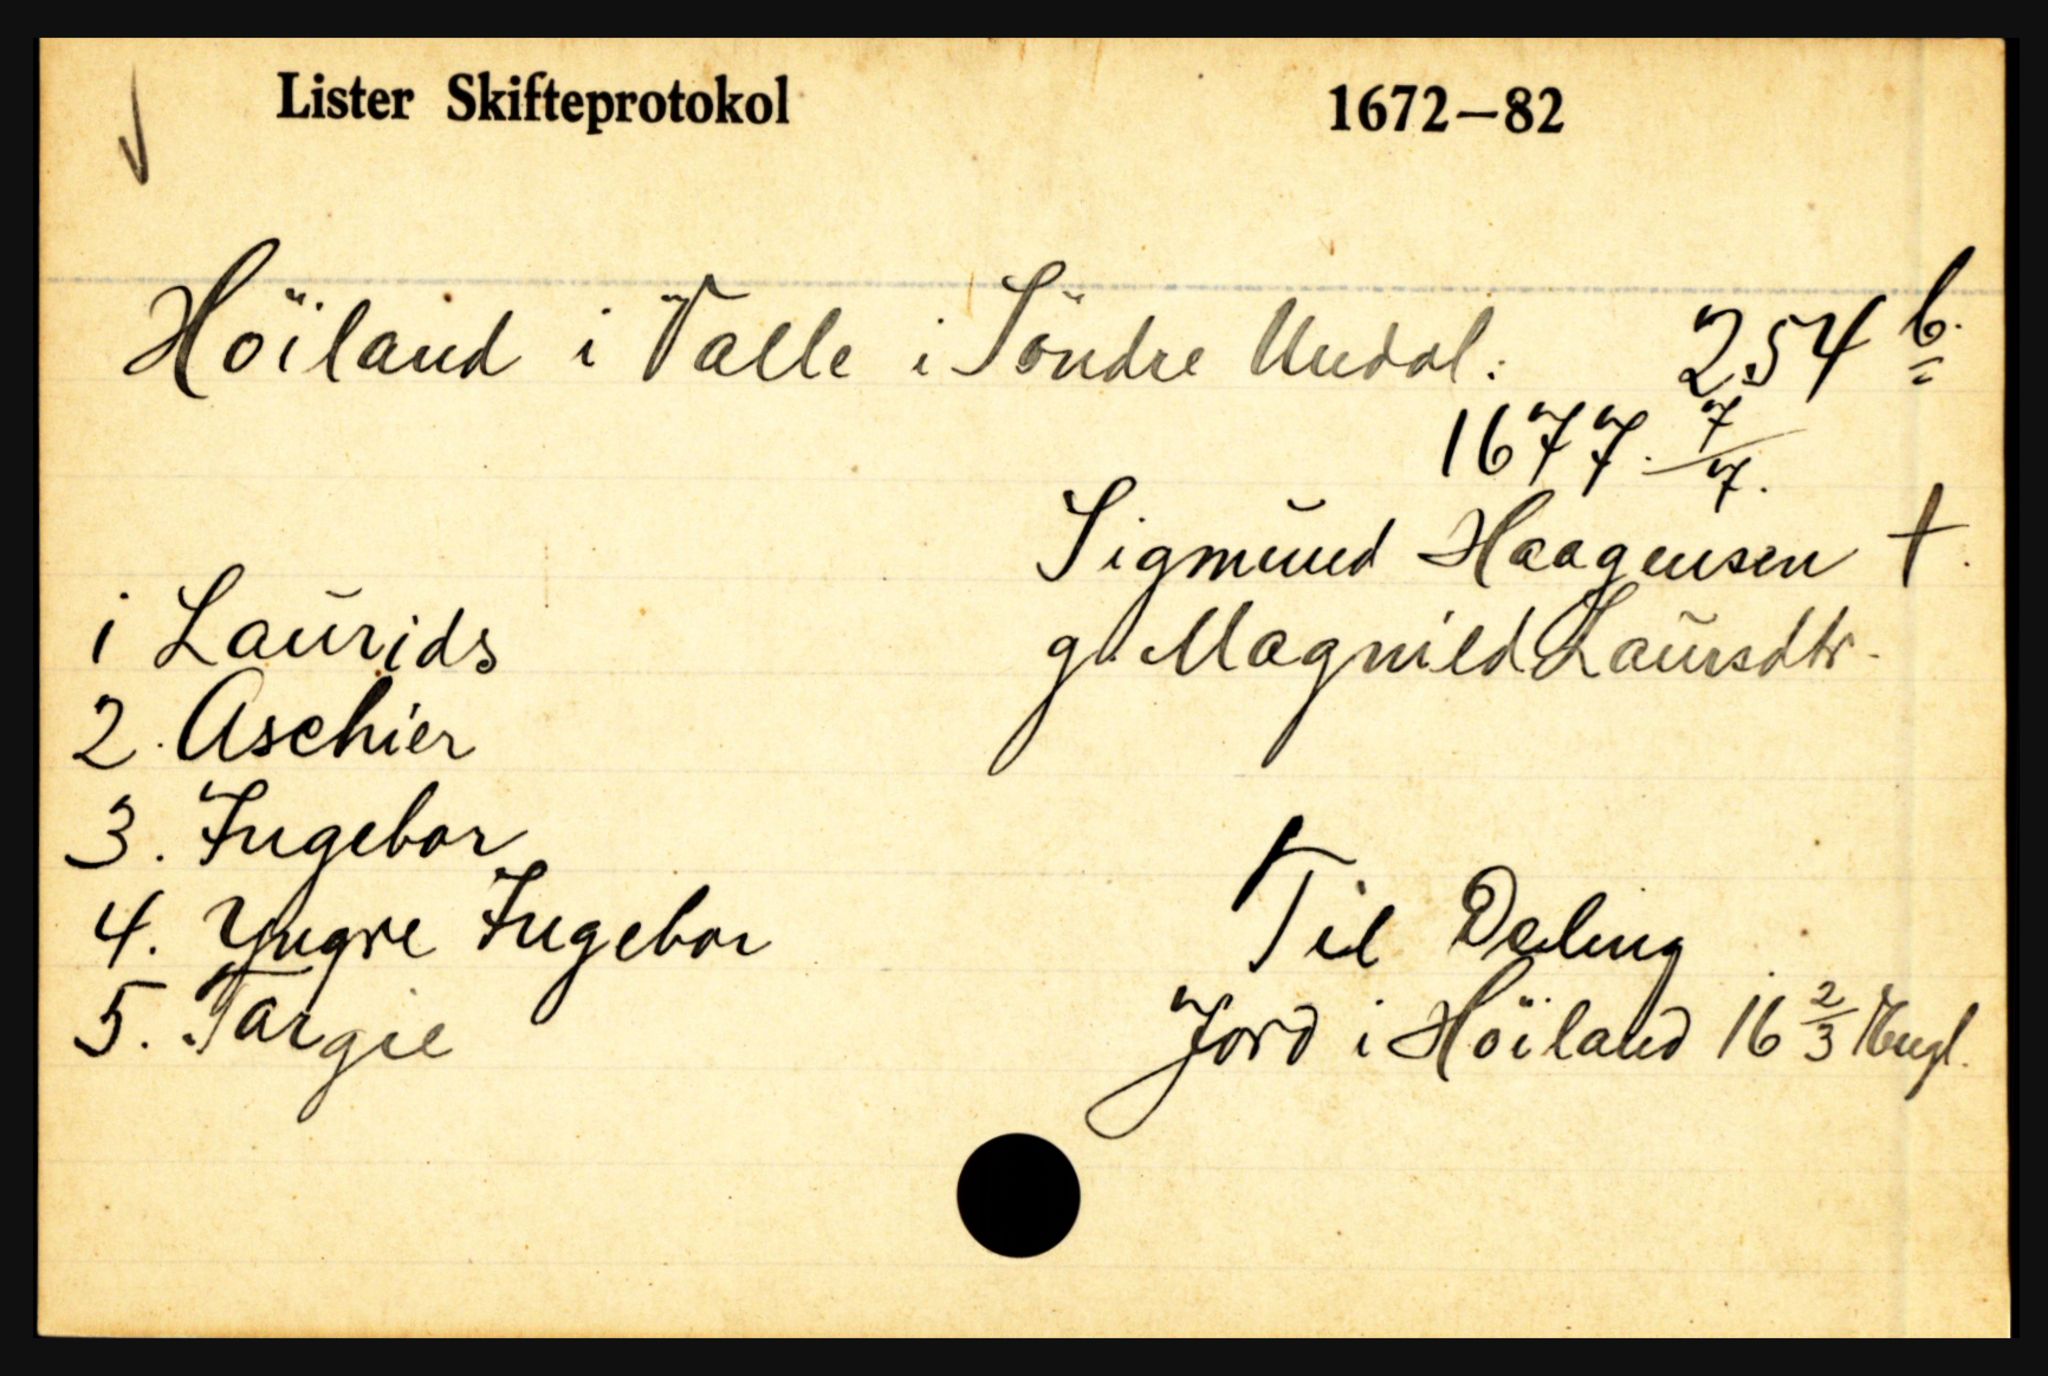 Lister Skifteprotokol 1672–82
Höiland i Valle i Söndre Undal. 254 b.
1677. 7/7.
Sigmund Haagensen †.
g. Magnild Laursdtr.
1 Laurids
2. Aschier
3. Ingebor
4. Yngre Ingebor
5. Targie
Til Deling
Jord i Höiland 16 2/3 Engl.